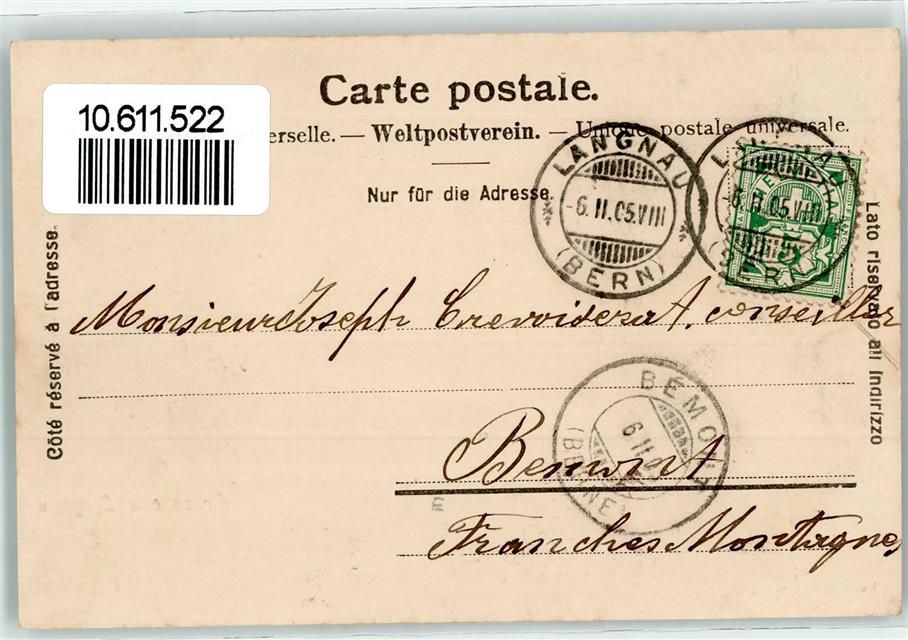 Carte postale.
10.611.522
erselle. — Weltpostverein. — Unione postale universale.
Nur für die Adresse.
LANGNAU
-6.II.05.VIII
(BERN)
LANGNAU
-6.II.05.VIII
(BERN)
5
Côté réservé à l'adresse.
Lato riservato all indirizzo
Monsieur Joseph Crevoiserat, conseiller
BÉMONT
6.II.05
(BERNE)
Bémont
Franches Montagnes